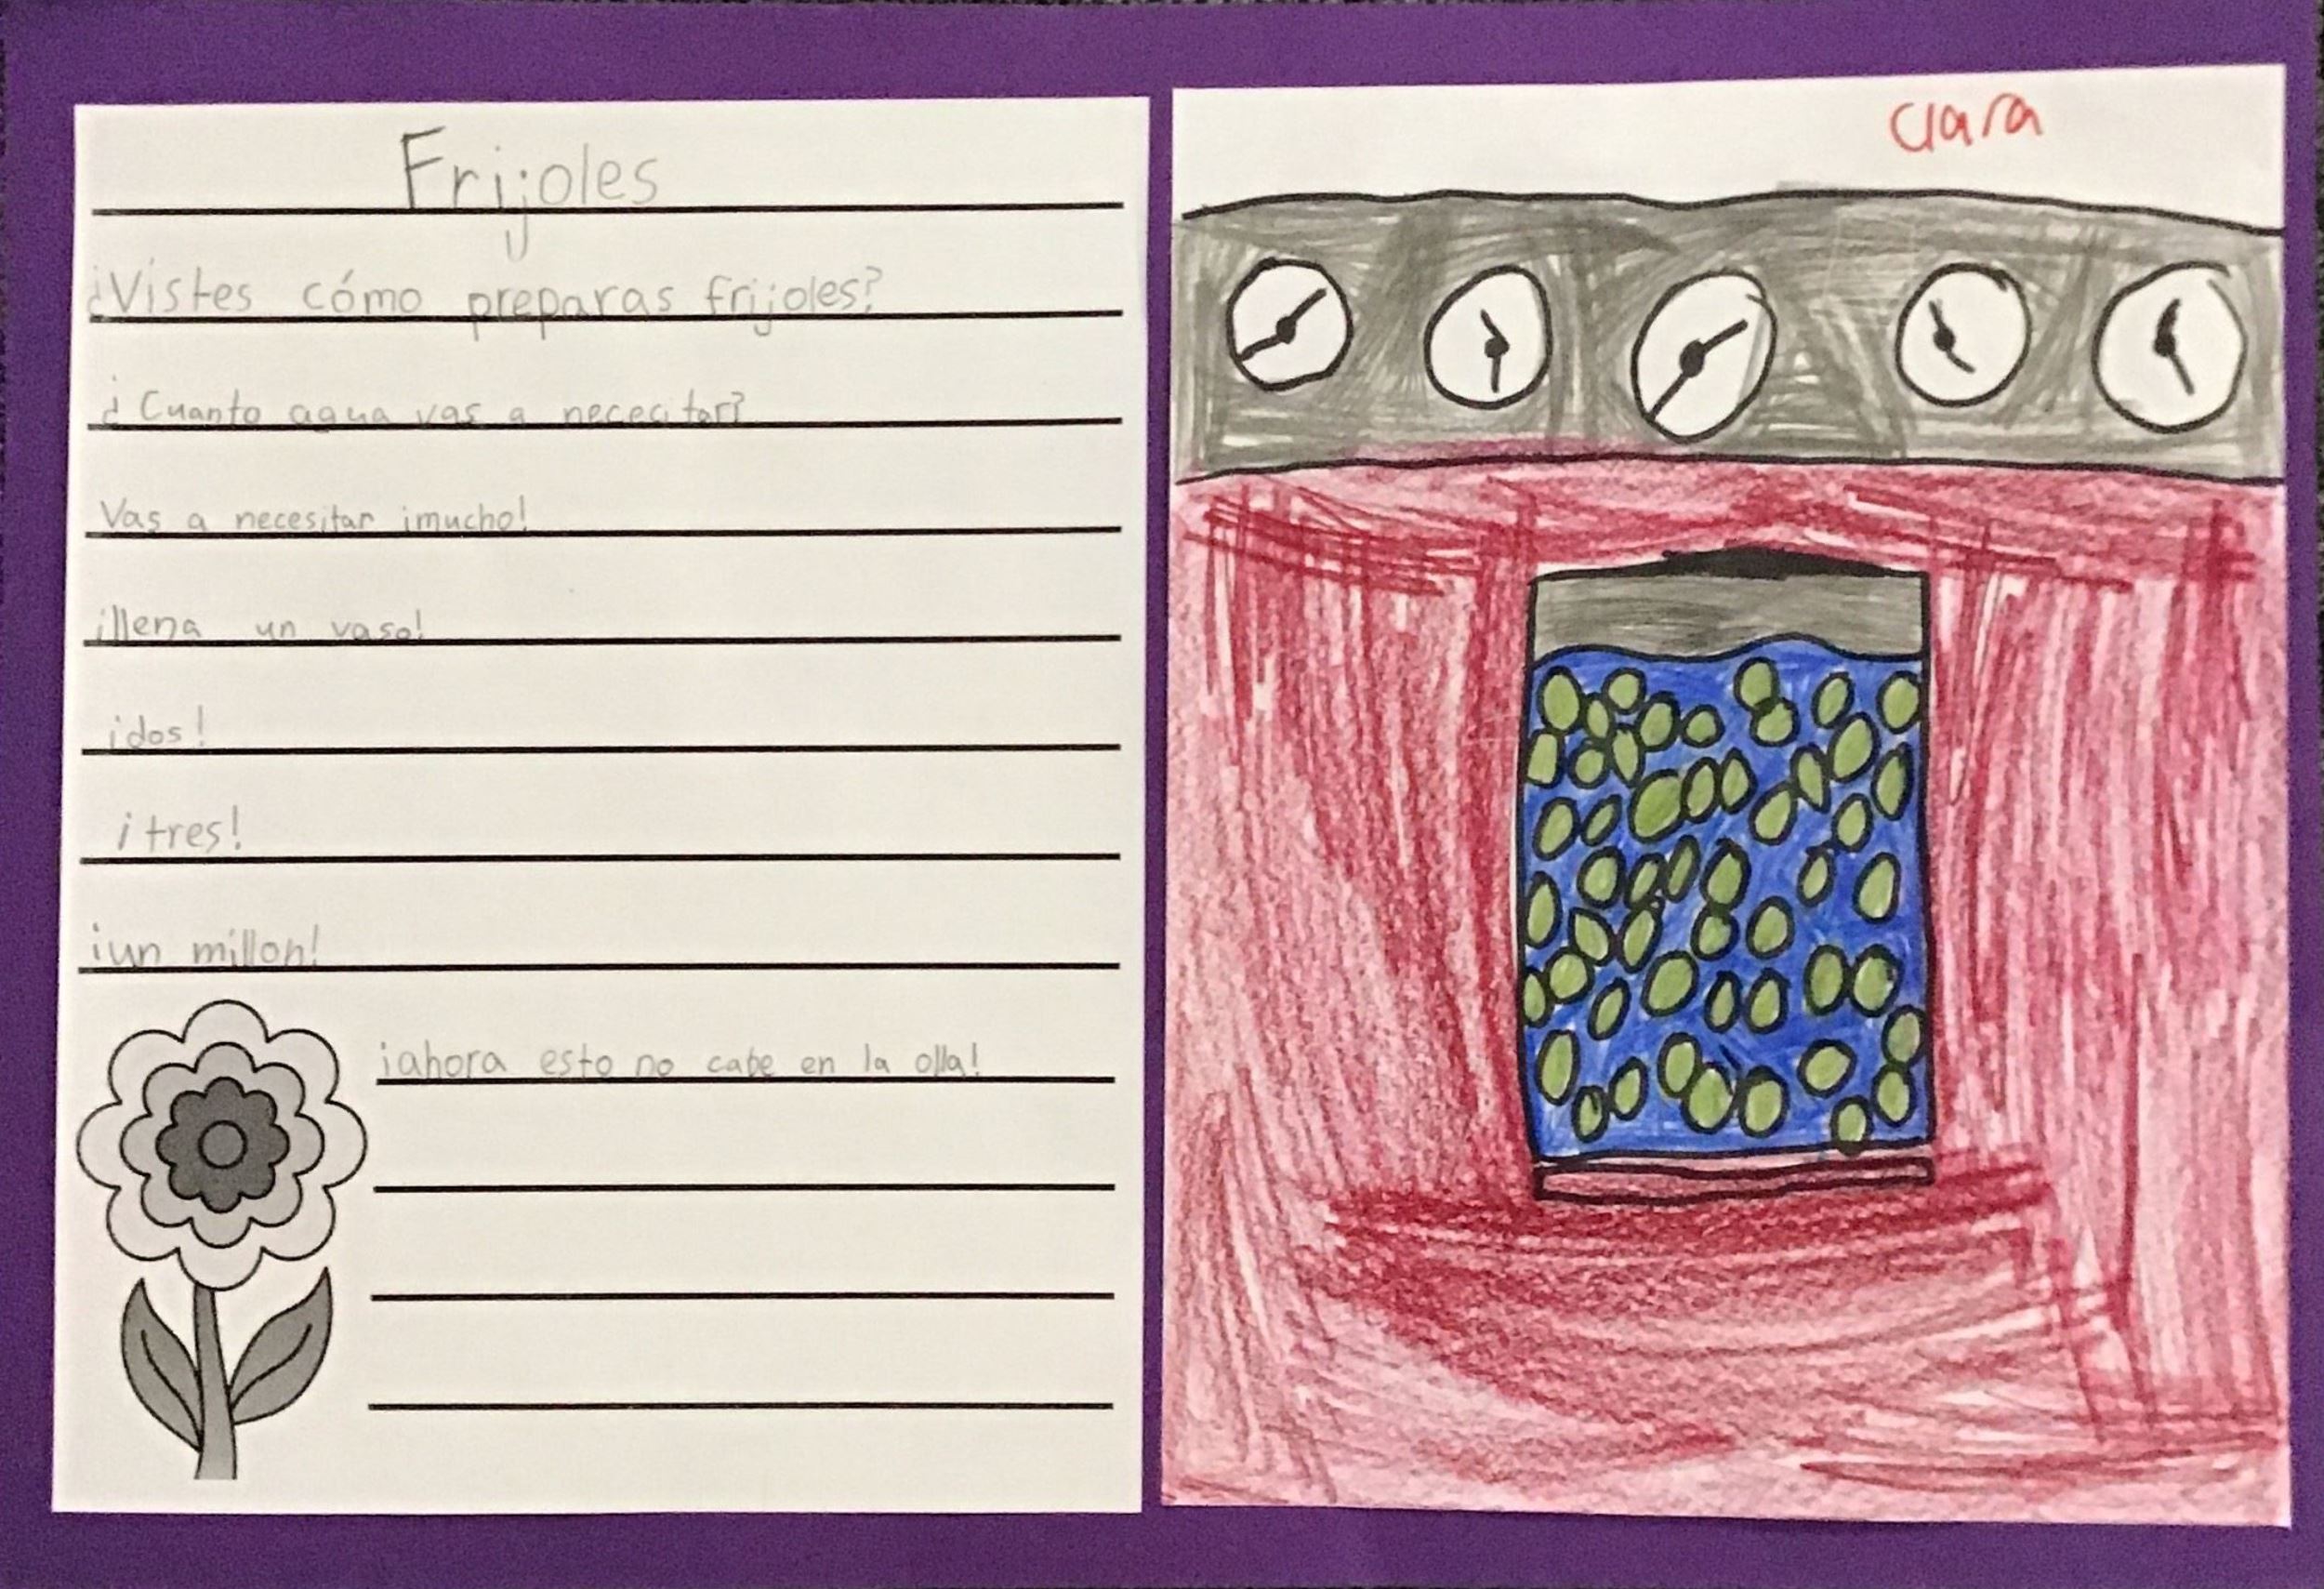 Frijoles
¿Vistes cómo preparas frijoles?
¿Cuanto agua vas a nececitar?
Vas a necesitar ¡mucho!
¡llena un vaso!
¡dos!
¡tres!
¡un millon!
¡ahora esto no cabe en la olla!
Clara